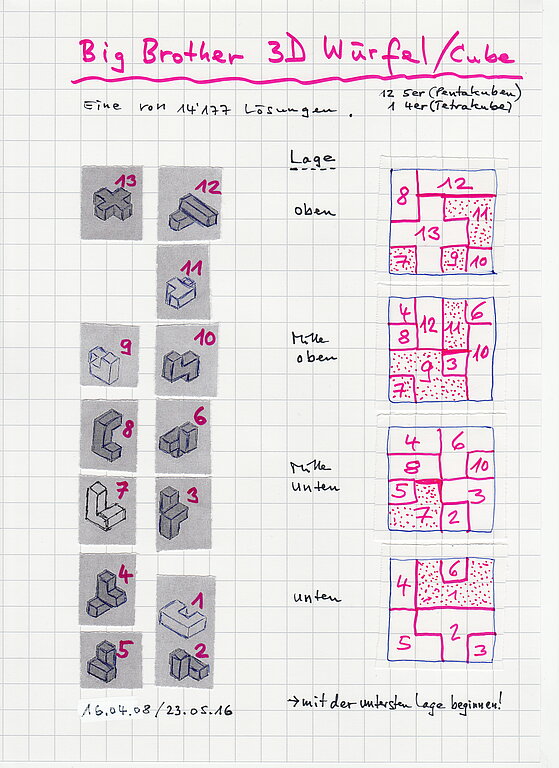 Big Brother 3D Würfel/Cube
Eine von 14'177 Lösungen.
12 5er (Pentakuben)
1 4er (Tetrakube)
Lage
13
12
oben
8 12
11
13
7 9 10
11
Mitte
oben
4 12 11 6
8 10
9 3
7
9
10
8
6
Mitte
unten
4 6
8 10
5 3
7 2
7
3
4
1
unten
4 6
1
5 2
3
5
2
16.04.08/23.05.16
→ mit der untersten Lage beginnen!